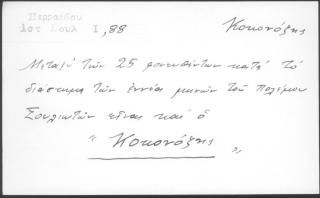 Περραιβου
Ιστ Σουλ Ι, 88
Κοκονόζης
Μεταξύ των 25 φονευθέντων κατά το
διάστημα των εννέα μηνών του πολέμου
Σουλιωτών είναι και ο
" Κοκονόζης "